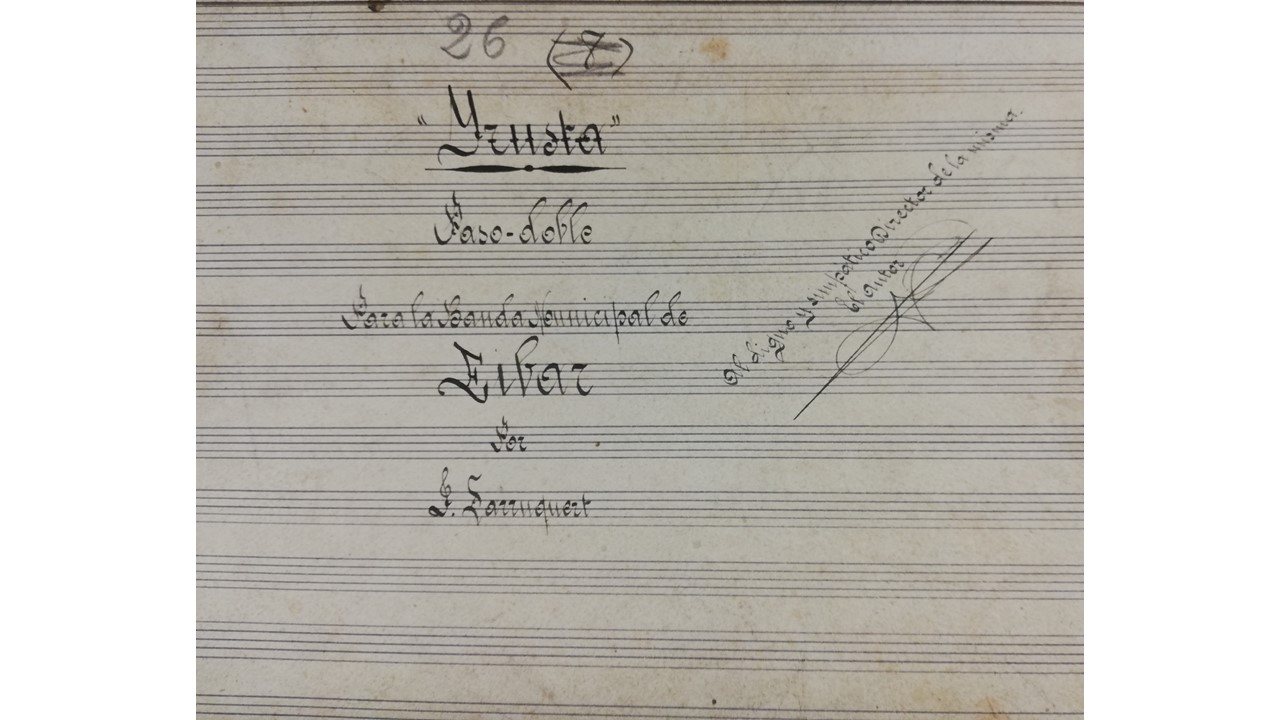 26 (7)
"Yrusta"
Paso-doble
Para la Banda Municipal de
Eibar
Por
F. Larruquert
Al digno y simpático Director de la misma.
El autor